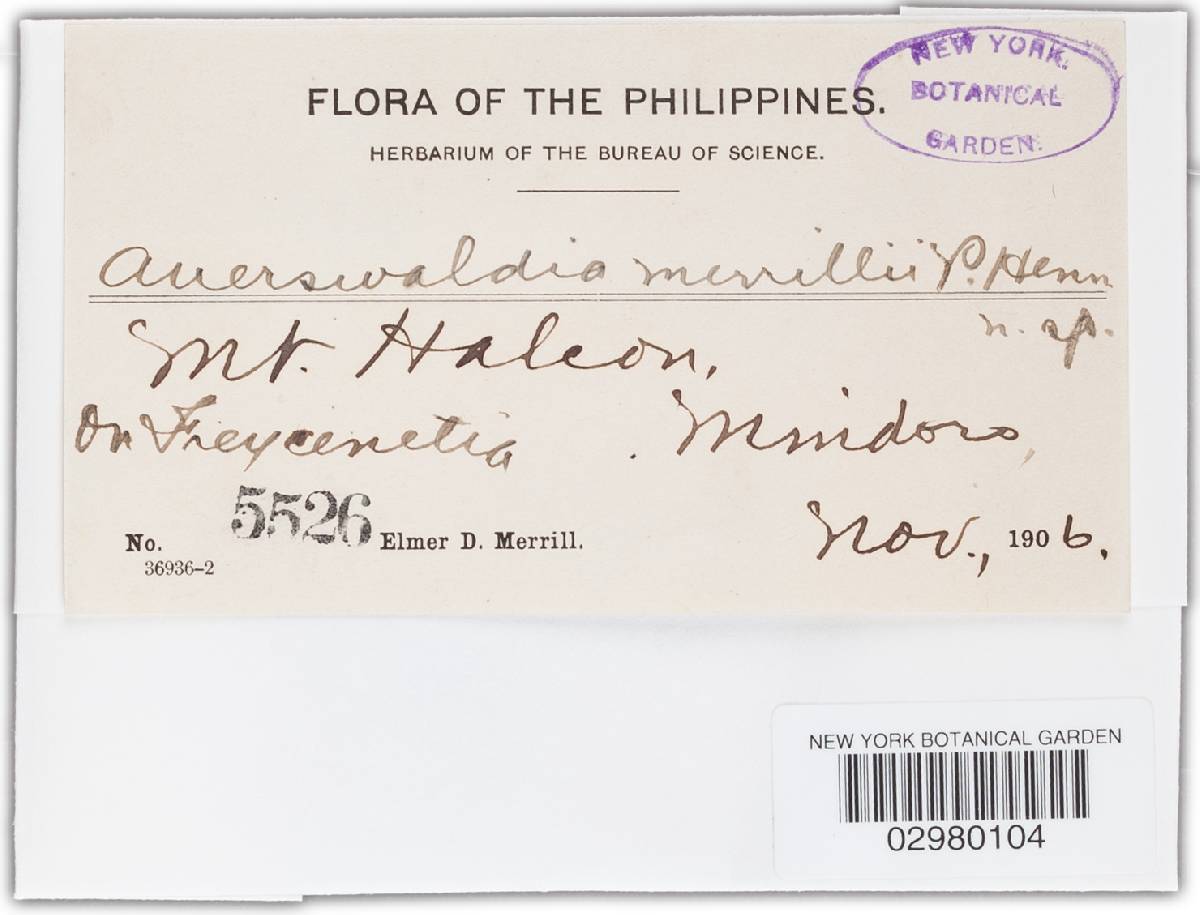 NEW YORK.
BOTANICAL
GARDEN.
FLORA OF THE PHILIPPINES.
HERBARIUM OF THE BUREAU OF SCIENCE.
Auerswaldia merrillii P. Henn
n. sp.
Mt. Halcon,
On Freycenetia
Mindoro,
No. 5526 Elmer D. Merrill.
Nov., 1906.
36936-2
NEW YORK BOTANICAL GARDEN
02980104